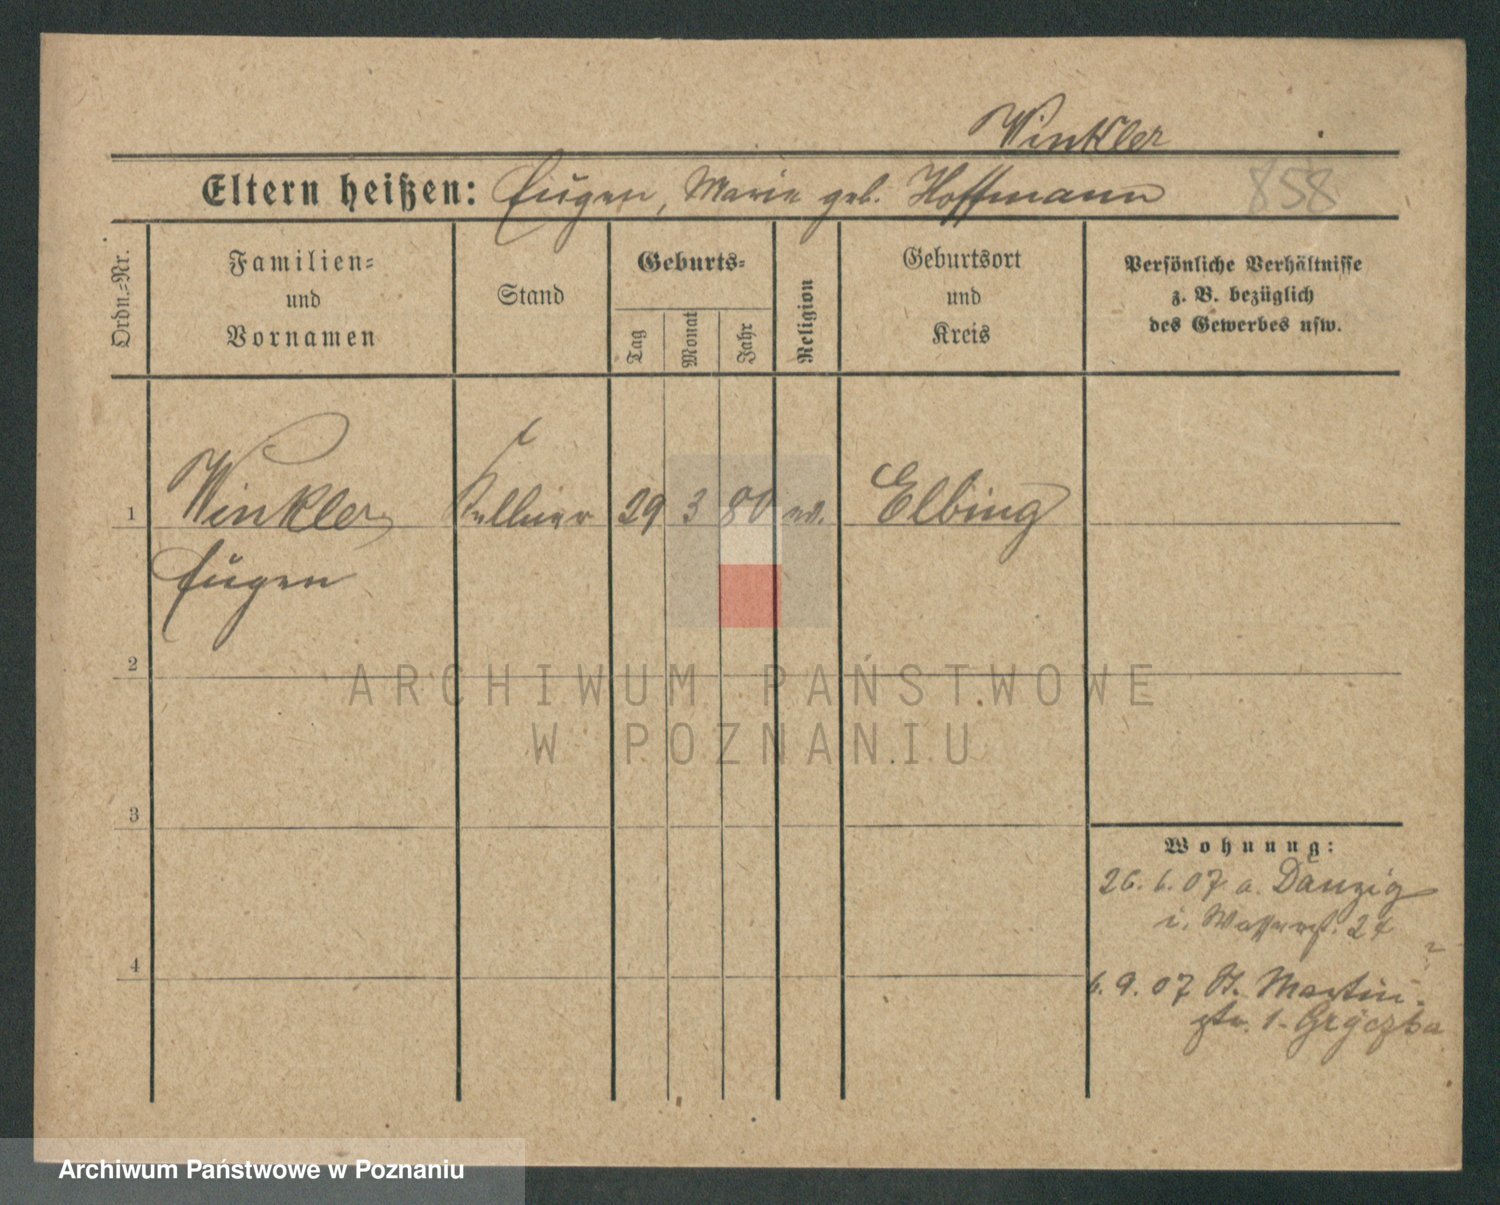 Winkler
Eltern heißen: Eugen, Marie geb. Hoffmann 858
Ordn.-Nr.
Familien-
und
Vornamen
Stand
Geburts-
Tag
Monat
Jahr
Religion
Geburtsort
und
Kreis
Persönliche Verhältnisse
z. B. bezüglich
des Gewerbes usw.
1 Winkler Kellner 29 3 80 ev. Elbing
Eugen
2
ARCHIWUM PAŃSTWOWE
W POZNANIU
3
Wohnung:
26. 6. 07 a. Danzig
i. 24
4
6. 9. 07 St. Martin
str. 1
Archiwum Państwowe w Poznaniu